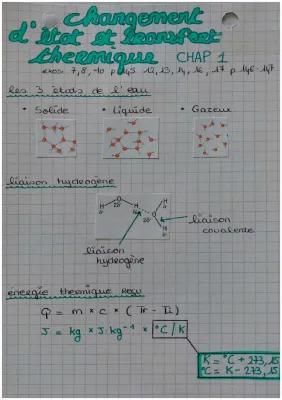 changement
d'état et transfert
thermique CHAP 1
exos: 7, 8, -10 p 145 12, 13, 14, 16, 17 p 146-147
les 3 états de l'eau
• Solide • Liquide • Gazeux
liaison hydrogène
H O H O H H
2δ- 2δ-
liaison
covalente
liaison
hydrogène
energie thermique reçu
Q = m × c × (Tf - Ti)
J = kg × J.kg⁻¹ × °C/K
K = °C + 273,15
°C = K - 273,15